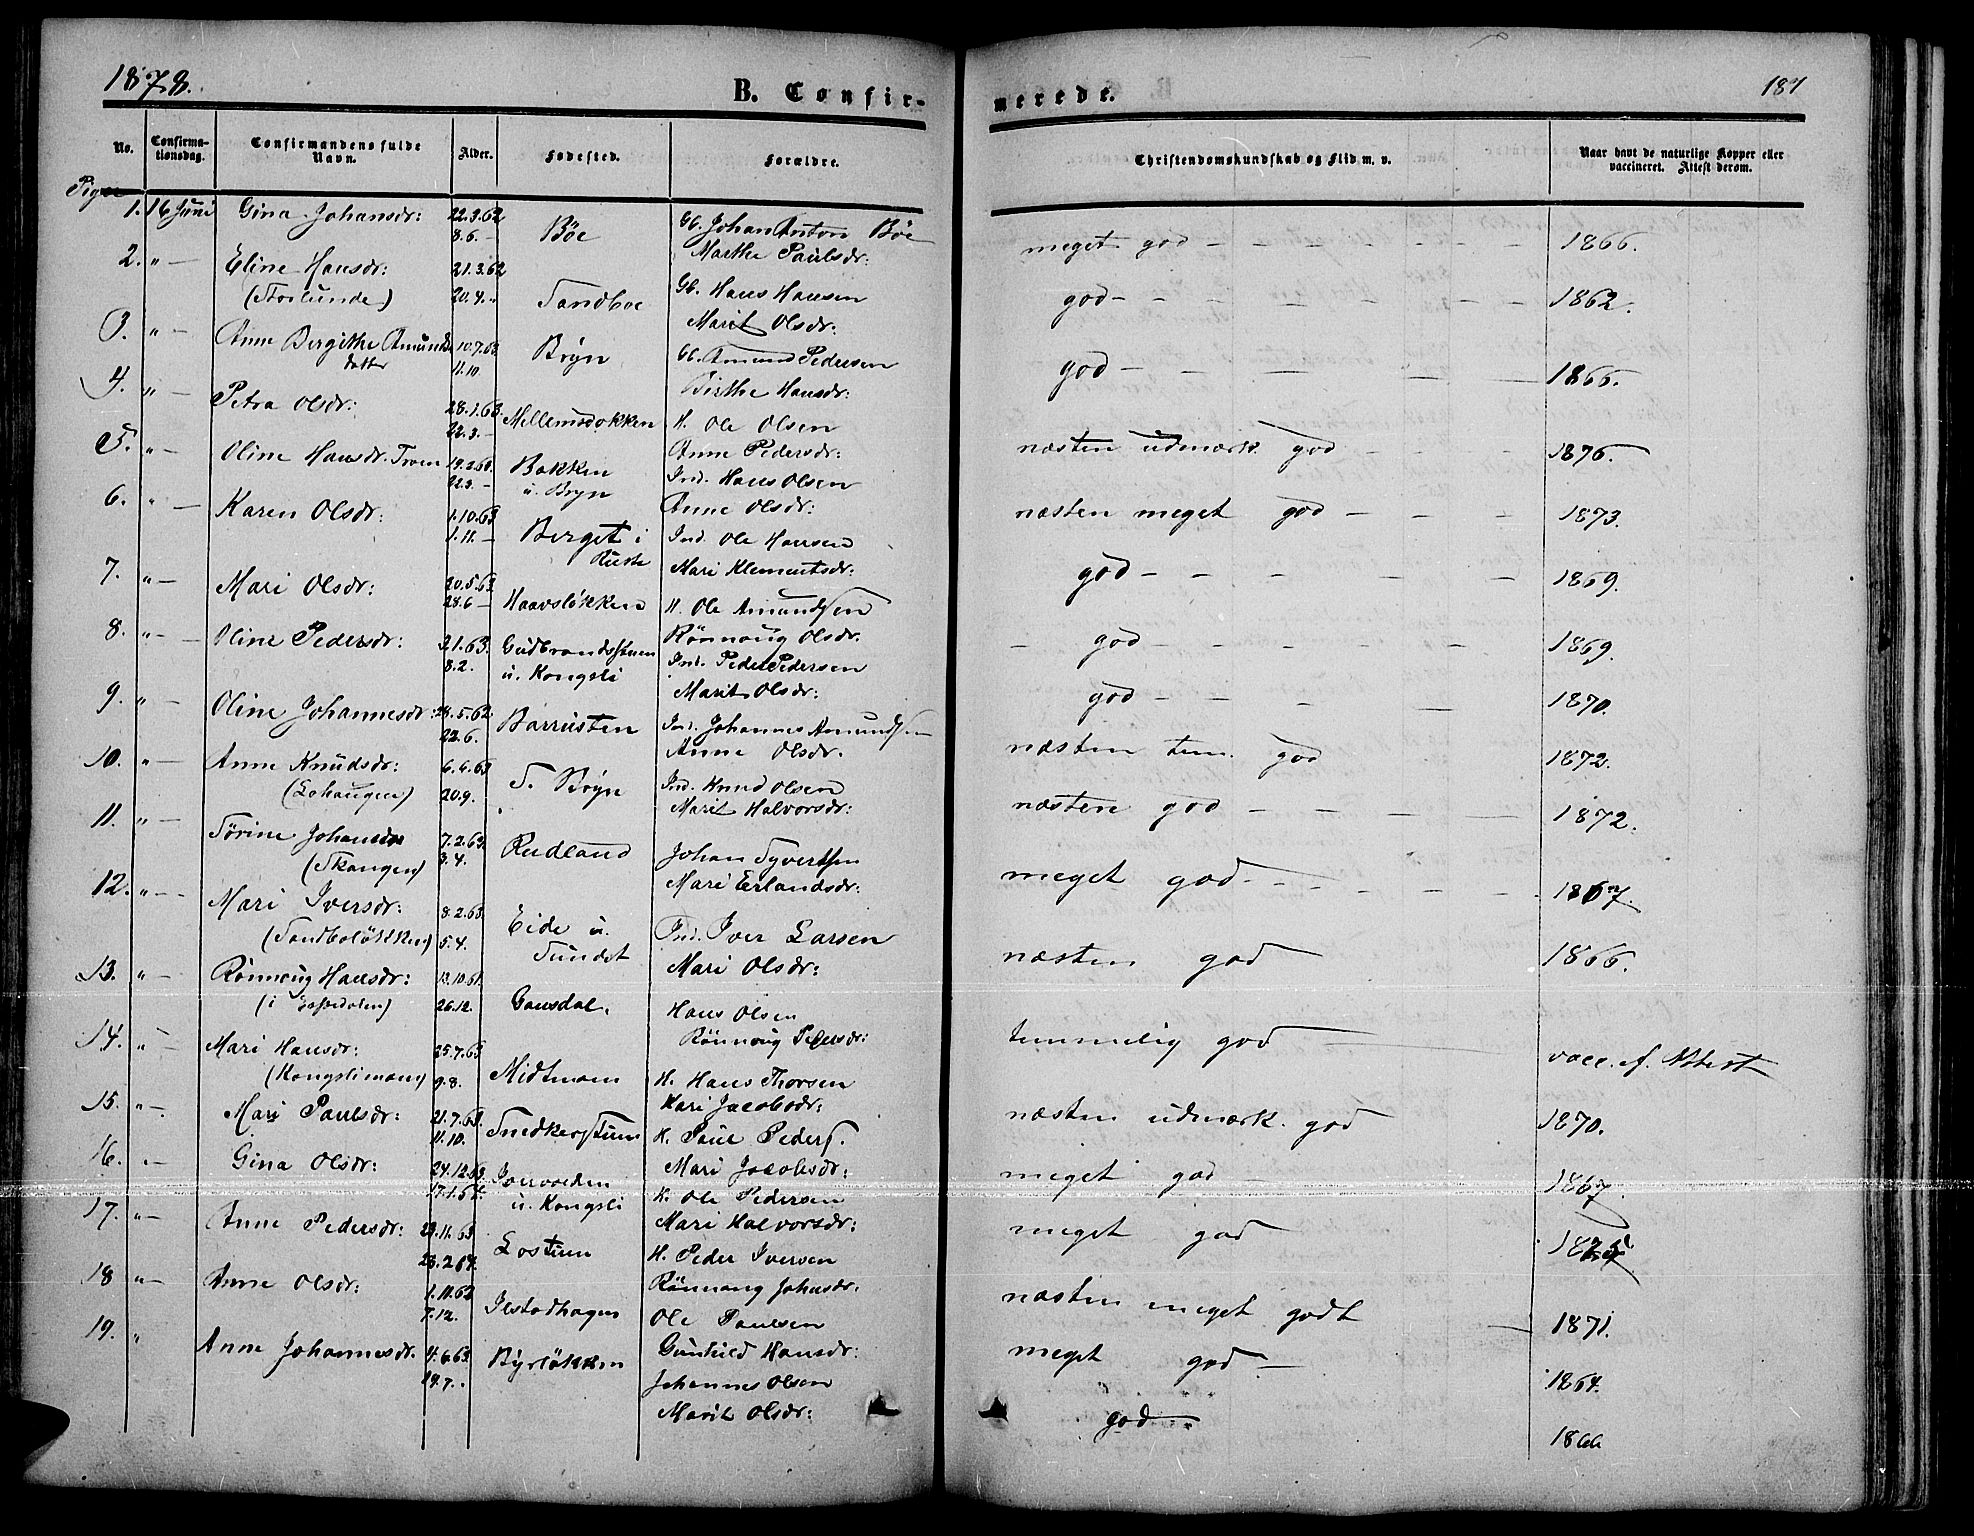 1878.
B. Confir-
merede.
187
No.
Confirma-
tionsdag.
Confirmandens fulde
Navn.
Alder.
Fødested.
Forældre.
Christendomskundskab og Flid m. v.
Naar havt de naturlige Kopper eller
vaccineret. Attest derom.
Piger
1. 16 Juni Gina Johansdr: 22.3.62 8.6. — Böe Gb. Johan Anton Böe
Marthe Paulsdr: meget god 1866.
2. " — Eline Hansdr: 21.3.62 20.4. Sandboe Gb. Hans Hansen
Marit Olsdr: god 1862.
3. " — Anne Bergitthe Amunds
datter 10.7.63 11.10 Bryn Gb. Amund Pedersen
Birthe Hansdr: god 1866.
4. " — Petra Olsdr: 28.1.63. 22.3. — Mellemsdokken H. Ole Olsen
Anne Pedersdr: næsten udmærk. god 1876.
5. " — Oline Hansdr. 22.3. — Bakken
u. Bryn Ind. Hans Olsen
Anne Olsdr: næsten meget god 1873.
6. " — Karen Olsdr: 1.10.63 1.11. — Berget i
Ruste Ind. Ole Hansen
Mari Klementsdr: god 1869.
7. " — Mari Olsdr: 20.5.63 28.6 — Haavsløkken H. Ole Amundsen
Rönnoug Olsdr. god 1869.
8. " — Oline Pedersdr: 8.2. Gudbrandsstuen
u. Kongsli Ind. Peder Pedersen
Marit Olsdr: god 1870.
9. " — Oline Johannesdr: 28.5.62 22.6. Barrusten Ind. Johannes Amundsen
Anne Olsdr. næsten tem. god 1872.
10. " — Anne Knudsdr:
(Lohaugen) 20.9. S. Bryn Ind. Knud Olsen
Marit Halvorsdr: næsten god 1872.
11. " — Sörine Johansdr
(Skaugen) 7.2.63. 3.4. Rudland Johan Syvertsen
Mari Erlandsdr: meget god 1867.
12. " — Mari Iversdr:
(Sandboløkken) 8.2.63. 5.4. Eide u.
Sundet Ind. Iver Larsen
Mari Olsdr: næsten god 1866.
13. " — Rönnoug Hansdr:
(i Espedalen) 26.12. Gausdal. Hans Olsen
Rönnoug Pedersdr: temmelig god vacc. ef. Attest
14. " — Mari Hansdr:
(Kongslimoen) 25.7.63 9.8. Midtmoen H. Hans Thorsen
Kari Jacobsdr: næsten udmærk. god 1870.
15. " — Mari Paulsdr: 21.7.63. 11.10. Snedkerstuen K. Paul Peders.
Mari Jacobsdr: meget god 1867.
16. " — Gina Olsdr: 24.12.63. 17.1.64 u. Kongsli K. Ole Pedersen
Mari Halvorsdr: meget god
17. " — Anne Pedersdr: 28.2.64. H. Peder Iversen
Rönnoug Johnsdr. næsten meget godt 1871.
18 " — Anne Olsdr: 7.12. Ilstadhagen Ole Paulsen
Gunhild Hansdr: meget god 1864.
19. " Anne Johannesdr. 4.6.63. 19.7. Byrløkken Johannes Olsen
Marit Olsdr: god 1866